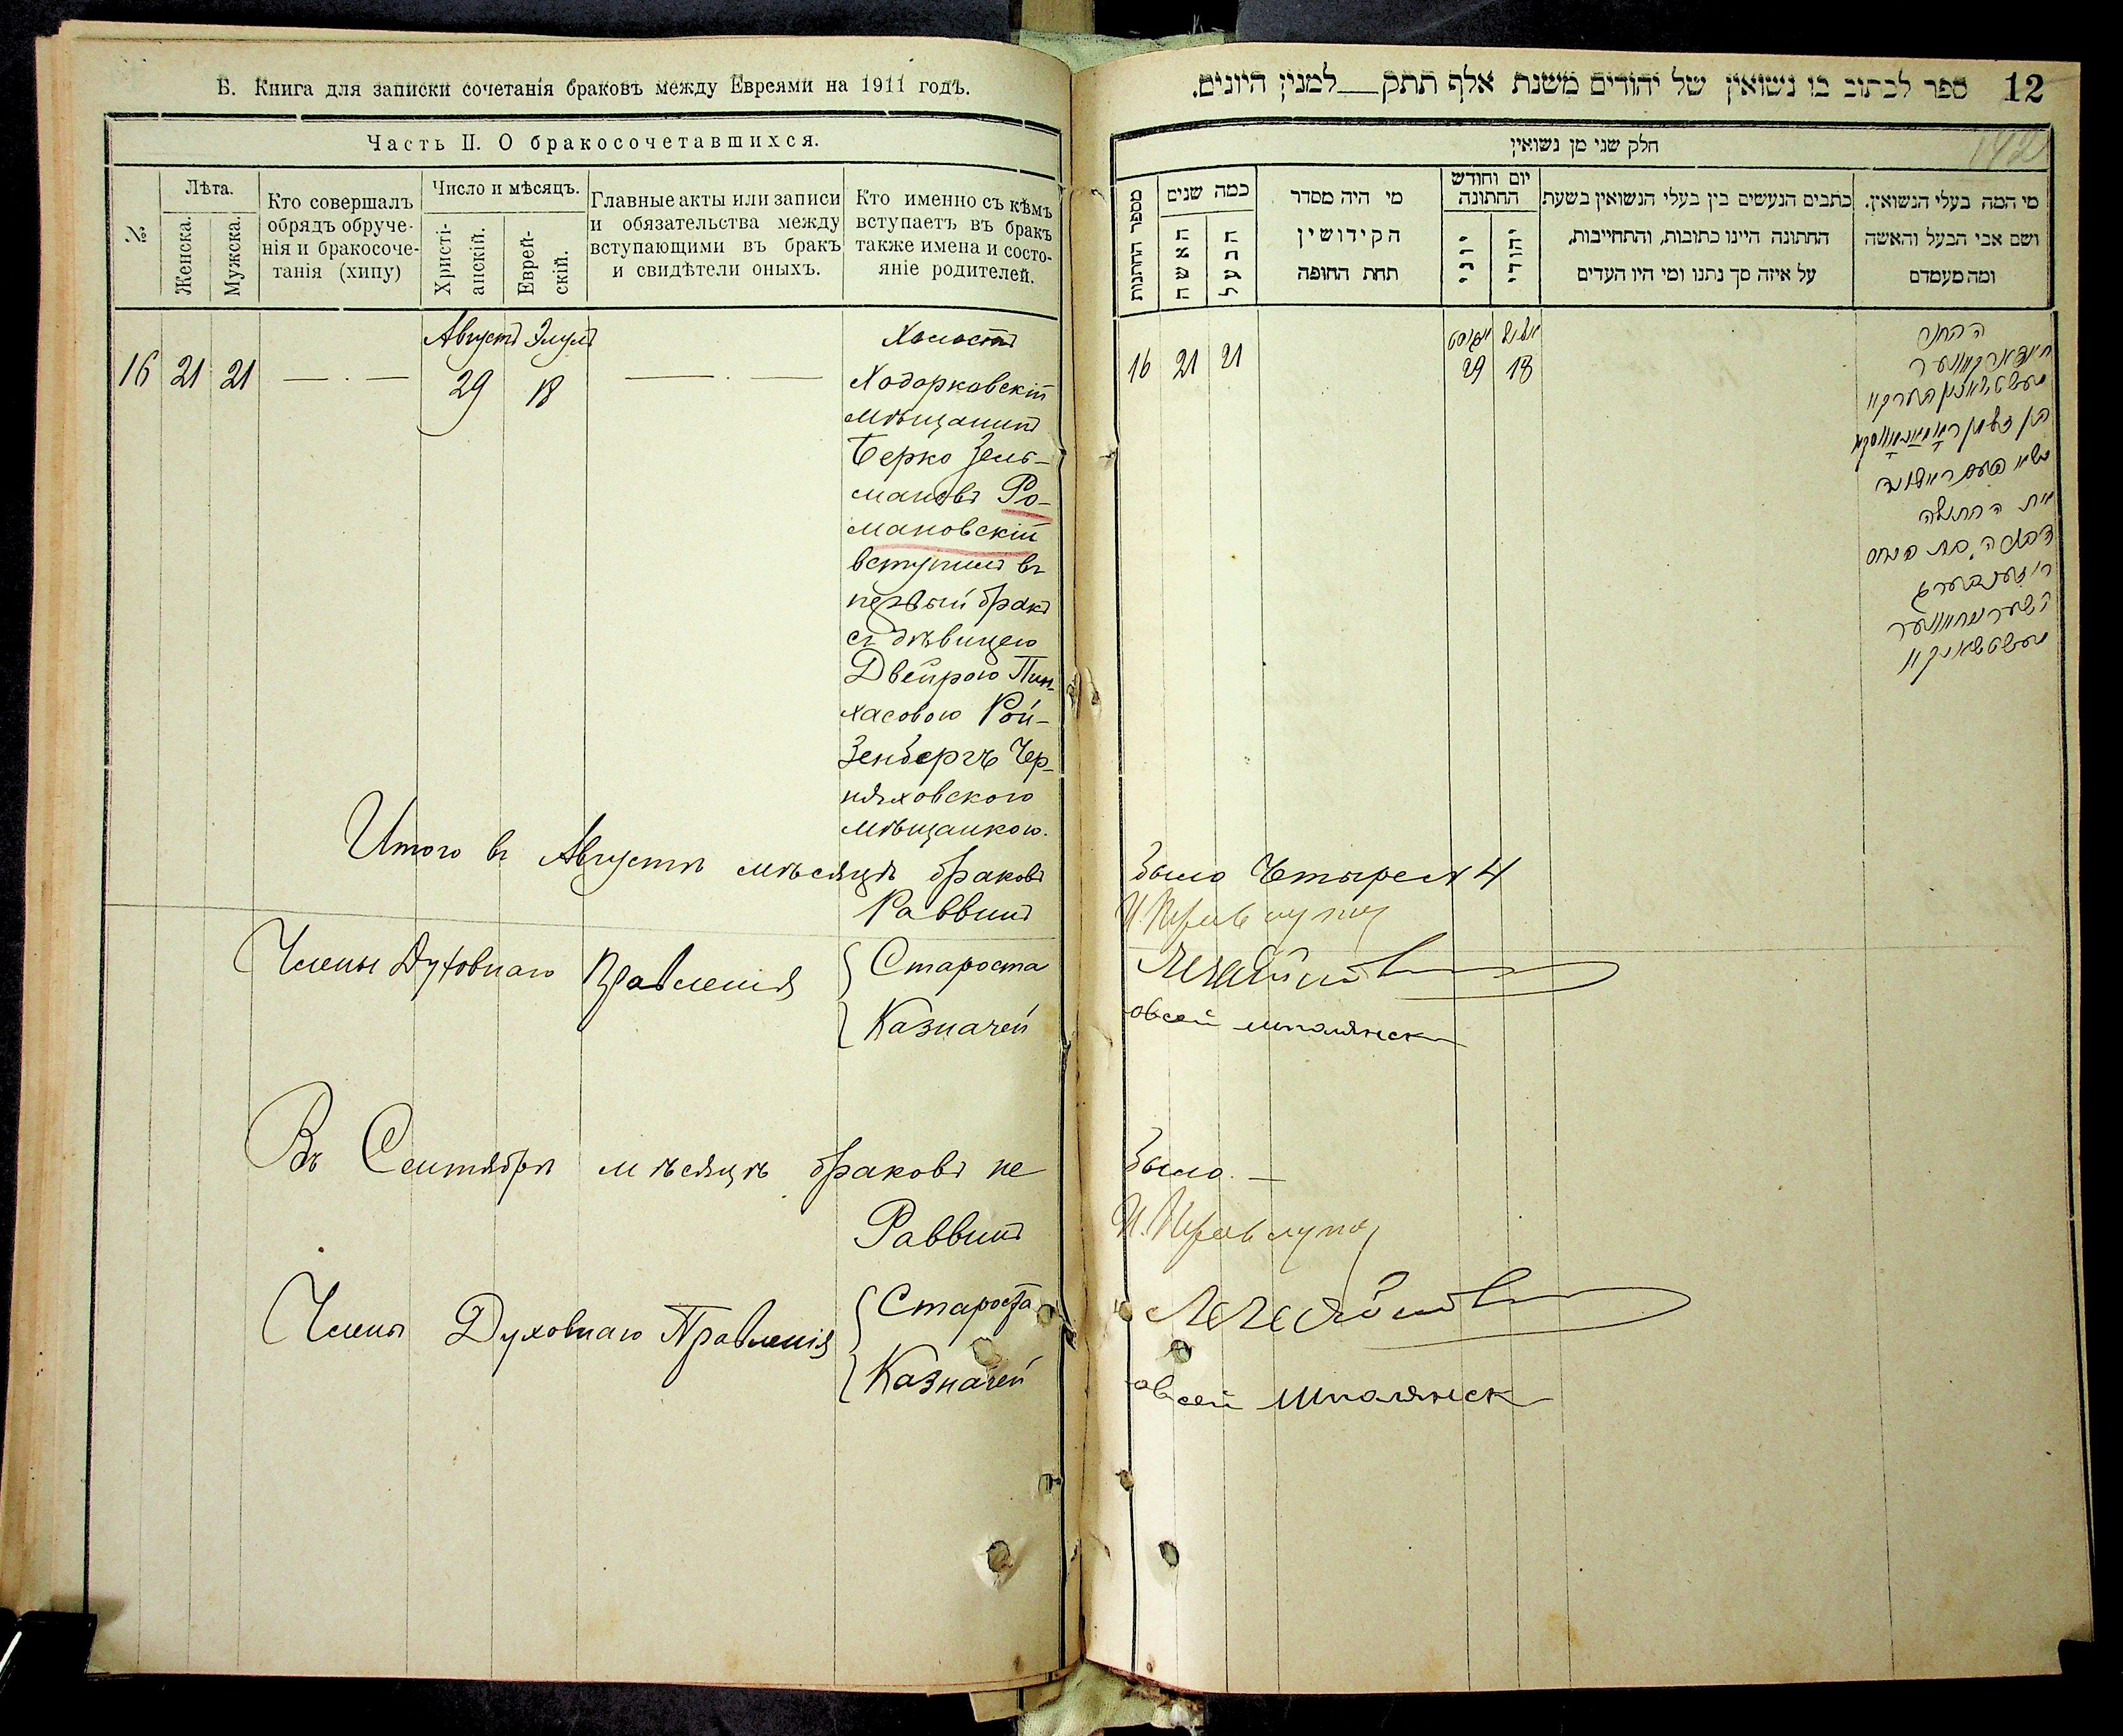 Б. Книга для записки сочетанія браковъ между Евреями на 1911 годъ.
Часть II. О бракосочетавшихся.
№
Лѣта.
Женска.
Мужска.
Кто совершалъ
обрядъ обруче-
нія и бракосоче-
танія (хипу)
Число и мѣсяцъ.
Христі-
анскій.
Еврей-
скій.
Главные акты или записи
и обязательства между
вступающими въ бракъ
и свидѣтели оныхъ.
Кто именно съ кѣмъ
вступаетъ въ бракъ
также имена и состо-
яніе родителей.
Августъ Элулъ
16 21 21 — . — 29 18 — . —
Холостъ
Ходорковскій
мѣщанинъ
Берко Зель-
мановъ Ро-
мановскій
вступилъ въ
первый бракъ
съ дѣвицею
Двейрою Пин-
хасовою Рой-
зенбергъ Чер-
няховского
мѣщанкою.
Итого въ Августѣ мѣсяцѣ браковъ
Раввинъ
Члены Духовнаго Правленія
Староста
Казначей
Въ Сентябрѣ мѣсяцѣ браковъ не
Раввинъ
Члены Духовнаго Правленія
Староста
Казначей
12
ספר לכתוב בו נשואין של יהודים משנת אלף תתק___למנין היונים.
חלק שני מן נשואין
מספר החתונות
כמה שנים
האשה
הבעל
מי היה מסדר
הקידושין
תחת החופה
יום וחודש
החתונה
יוני
יהודי
כתבים הנעשים בין בעלי הנשואין בשעת
החתונה היינו כתובות, והתחייבות,
על איזה סך נתנו ומי היו העדים
מי המה בעלי הנשואין.
ושם אבי הבעל והאשה
ומה מעמדם
אויגוסט אלול
16 21 21 29 18
הבחור
בן זלמן ראמאנאווסקי
נשא בפעם ראשונה
את הבתולה
דבורה בת פנחס
רויזענבערג
было Четыре 4
Овсей Шполянск
было. —
Овсей Шполянск